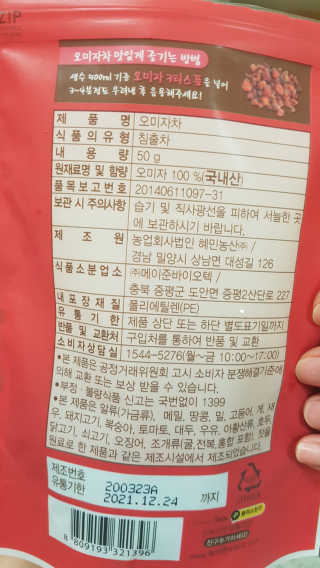 오미자차 맛있게 즐기는 방법
생수 400ml 기준 오미자 3티스푼을 넣어
3~4분정도 우려낸 후 음용해주세요!
제 품 명 오미자차
식 품 의 유 형 침출차
내 용 량 50 g
원재료명 및 함량 오미자 100 %(국내산)
품 목 보 고 번 호 20140611097-31
보관 시 주의사항 습기 및 직사광선을 피하여 서늘한 곳
에 보관하시기 바랍니다.
제 조 원 농업회사법인 혜민농산㈜ /
경남 밀양시 상남면 대성길 126
식 품 소 분 업 소 ㈜메이준바이오텍 /
충북 증평군 도안면 증평2산단로 227
내 포 장 재 질 폴리에틸렌(PE)
유 통 기 한 제품 상단 또는 하단 별도표기일까지
반품 및 교환처 구입처를 통하여 반품 및 교환
소 비 자 상 담 실 1544-5276(월~금 10:00~17:00)
•본 제품은 공정거래위원회 고시 소비자 분쟁해결기준에
의해 교환 또는 보상 받을 수 있습니다.
•부정·불량식품 신고는 국번없이 1399
•본 제품은 알류(가금류), 메밀, 땅콩, 밀, 고등어, 게, 새
우, 돼지고기, 복숭아, 토마토, 대두, 우유, 아황산류, 호두,
닭고기, 쇠고기, 오징어, 조개류(굴,전복,홍합 포함), 잣을
원료로 한 제품과 같은 제조시설에서 제조되었습니다.
제조번호 200323A
유통기한 2021.12.24 까지
8 809193 321396